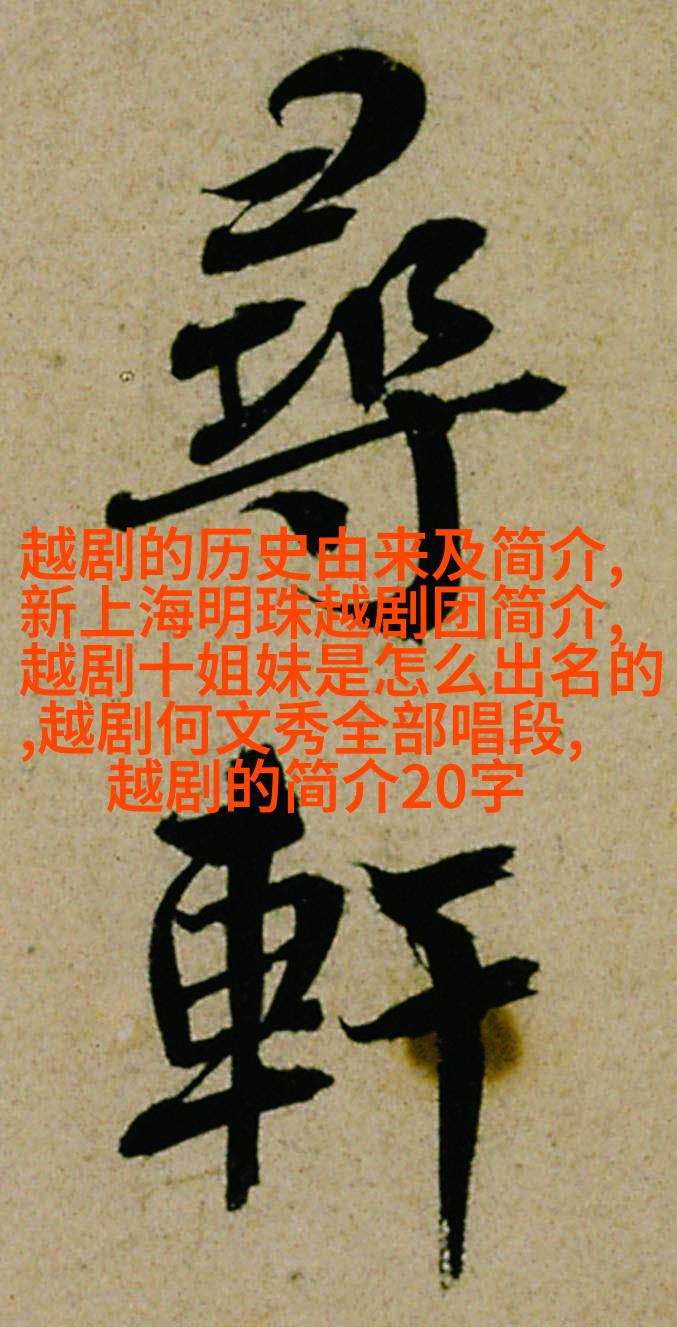 尋
軒
越剧的历史由来及简介,
新上海明珠越剧团简介,
越剧十姐妹是怎么出名的
,越剧何文秀全部唱段,
越剧的简介20字